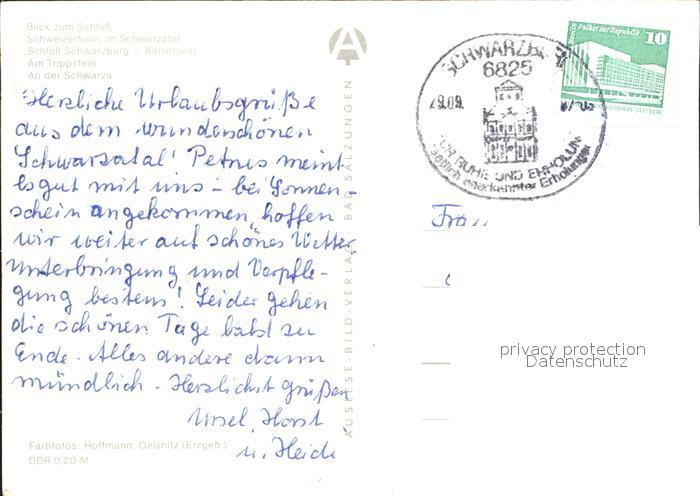 Blick zum Schloß
Schweizerhaus im Schwarzatal
Schloß Schwarzburg – Kaisersaal
Am Trippstein
An der Schwarza
Herzliche Urlaubsgrüße
aus dem wunderschönen
Schwarzatal! Petrus meint
es gut mit uns – bei Sonnen-
schein angekommen, hoffen
wir weiter auf schönes Wetter,
Unterbringung und Verpfle-
gung bestens! Leider gehen
die schönen Tage bald zu
Ende. Alles andere dann
mündlich. Herzlichst grüßen
Ursel, Horst
u. Heidi
Farbfotos: Hoffmann, Oelsnitz (Erzgeb.)
DDR 0,20 M
AUSLESE-BILD-VERLAG BAD SALZUNGEN
SCHWARZBURG
6825
29.09.
FÜR RUHE UND ERHOLUNG
staatlich anerkannter Erholungsort
Berlin, Palast der Republik
10
Frau
privacy protection
Datenschutz